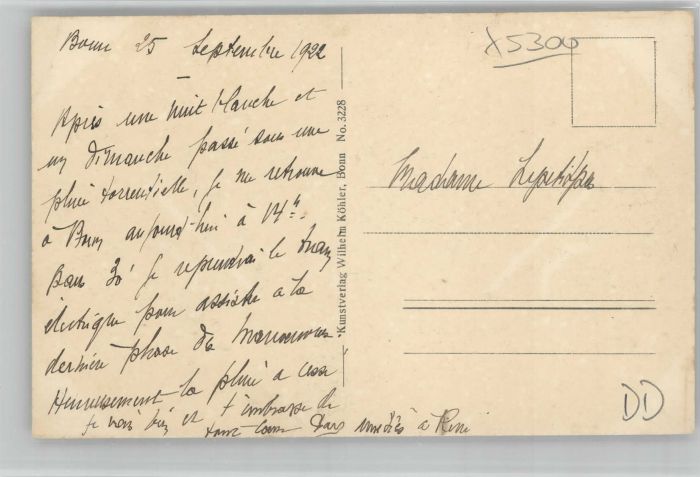 Bonn 25 Septembre 1922
Après une nuit blanche et
un dimanche passé sous une
pluie torrentielle, je me retrouve
à Bonn aujourd'hui à 14h.
Dans 30' je reprendrai le tram
électrique pour assister à la
dernière phase de manoeuvres
Heureusement la pluie a cessé
je vais bien et t'embrasse de
tout coeur
Kunstverlag Wilhelm Köhler, Bonn No. 3228
X5300
Madame
DD